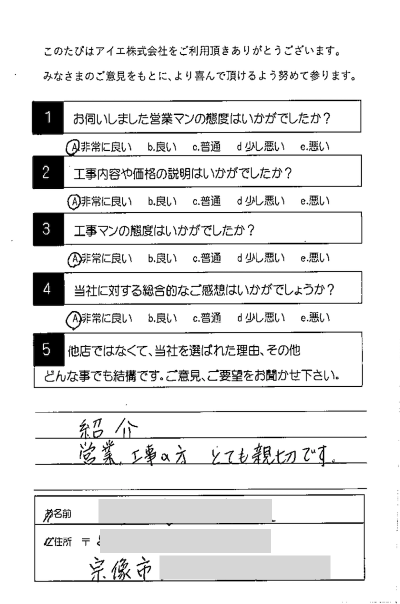 このたびはアイエ株式会社をご利用頂きありがとうございます。
みなさまのご意見をもとに、より喜んで頂けるよう努めて参ります。
1 お伺いしました営業マンの態度はいかがでしたか?
A非常に良い b.良い c.普通 d少し悪い e.悪い
2 工事内容や価格の説明はいかがでしたか?
A非常に良い b.良い c.普通 d少し悪い e.悪い
3 工事マンの態度はいかがでしたか?
A非常に良い b.良い c.普通 d少し悪い e.悪い
4 当社に対する総合的なご感想はいかがでしょうか?
A非常に良い b.良い c.普通 d少し悪い e.悪い
5 他店ではなくて、当社を選ばれた理由、その他
どんな事でも結構です。ご意見、ご要望をお聞かせ下さい。
紹介
営業、工事の方 とても親切です。
お名前
ご住所 〒
宗像市